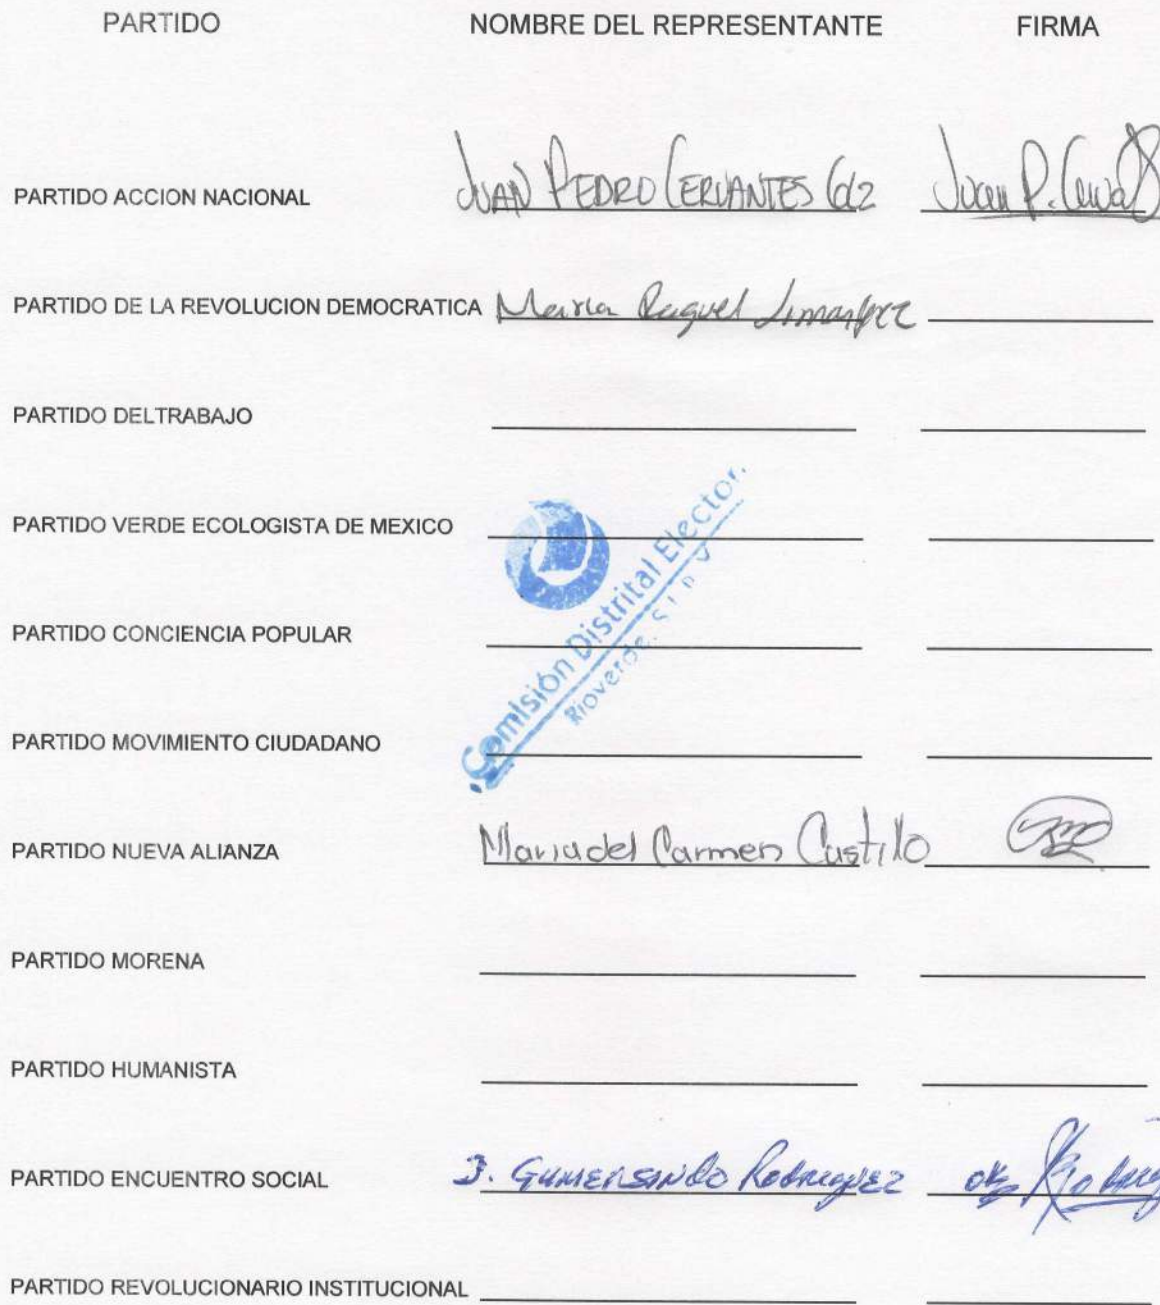 PARTIDO NOMBRE DEL REPRESENTANTE FIRMA
PARTIDO ACCION NACIONAL JUAN PEDRO CERVANTES Juan P.
PARTIDO DE LA REVOLUCION DEMOCRATICA Maria Raquel
PARTIDO DELTRABAJO
PARTIDO VERDE ECOLOGISTA DE MEXICO
Comisión Distrital Elector.
Rioverde.
PARTIDO CONCIENCIA POPULAR
PARTIDO MOVIMIENTO CIUDADANO
PARTIDO NUEVA ALIANZA Maria del Carmen Castillo
PARTIDO MORENA
PARTIDO HUMANISTA
PARTIDO ENCUENTRO SOCIAL J. GUMERSINDO Rodriguez
PARTIDO REVOLUCIONARIO INSTITUCIONAL